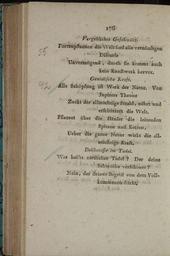 176
Vergebliches Geschwätz.
Fortzupflanzen die Welt sind alle vernünftigen
Discurse
Unvermögend, durch sie kommt auch
kein Kunstwerk hervor.
Genialische Kraft.
Alle Schöpfung ist Werk der Natur. Von
Jupiters Throne
Zuckt der allmächtige Strahl, nährt und
erschüttert die Welt.
Pflanzet über die Häuser die leitenden
Spitzen und Ketten,
Ueber die ganze Natur wirkt die all-
mächtige Kraft.
Delikatesse im Tadel.
Was heißt zärtlicher Tadel? Der deine
Schwäche verschonet?
Nein, der deinen Begriff von dem Voll-
kommenen stärkt.